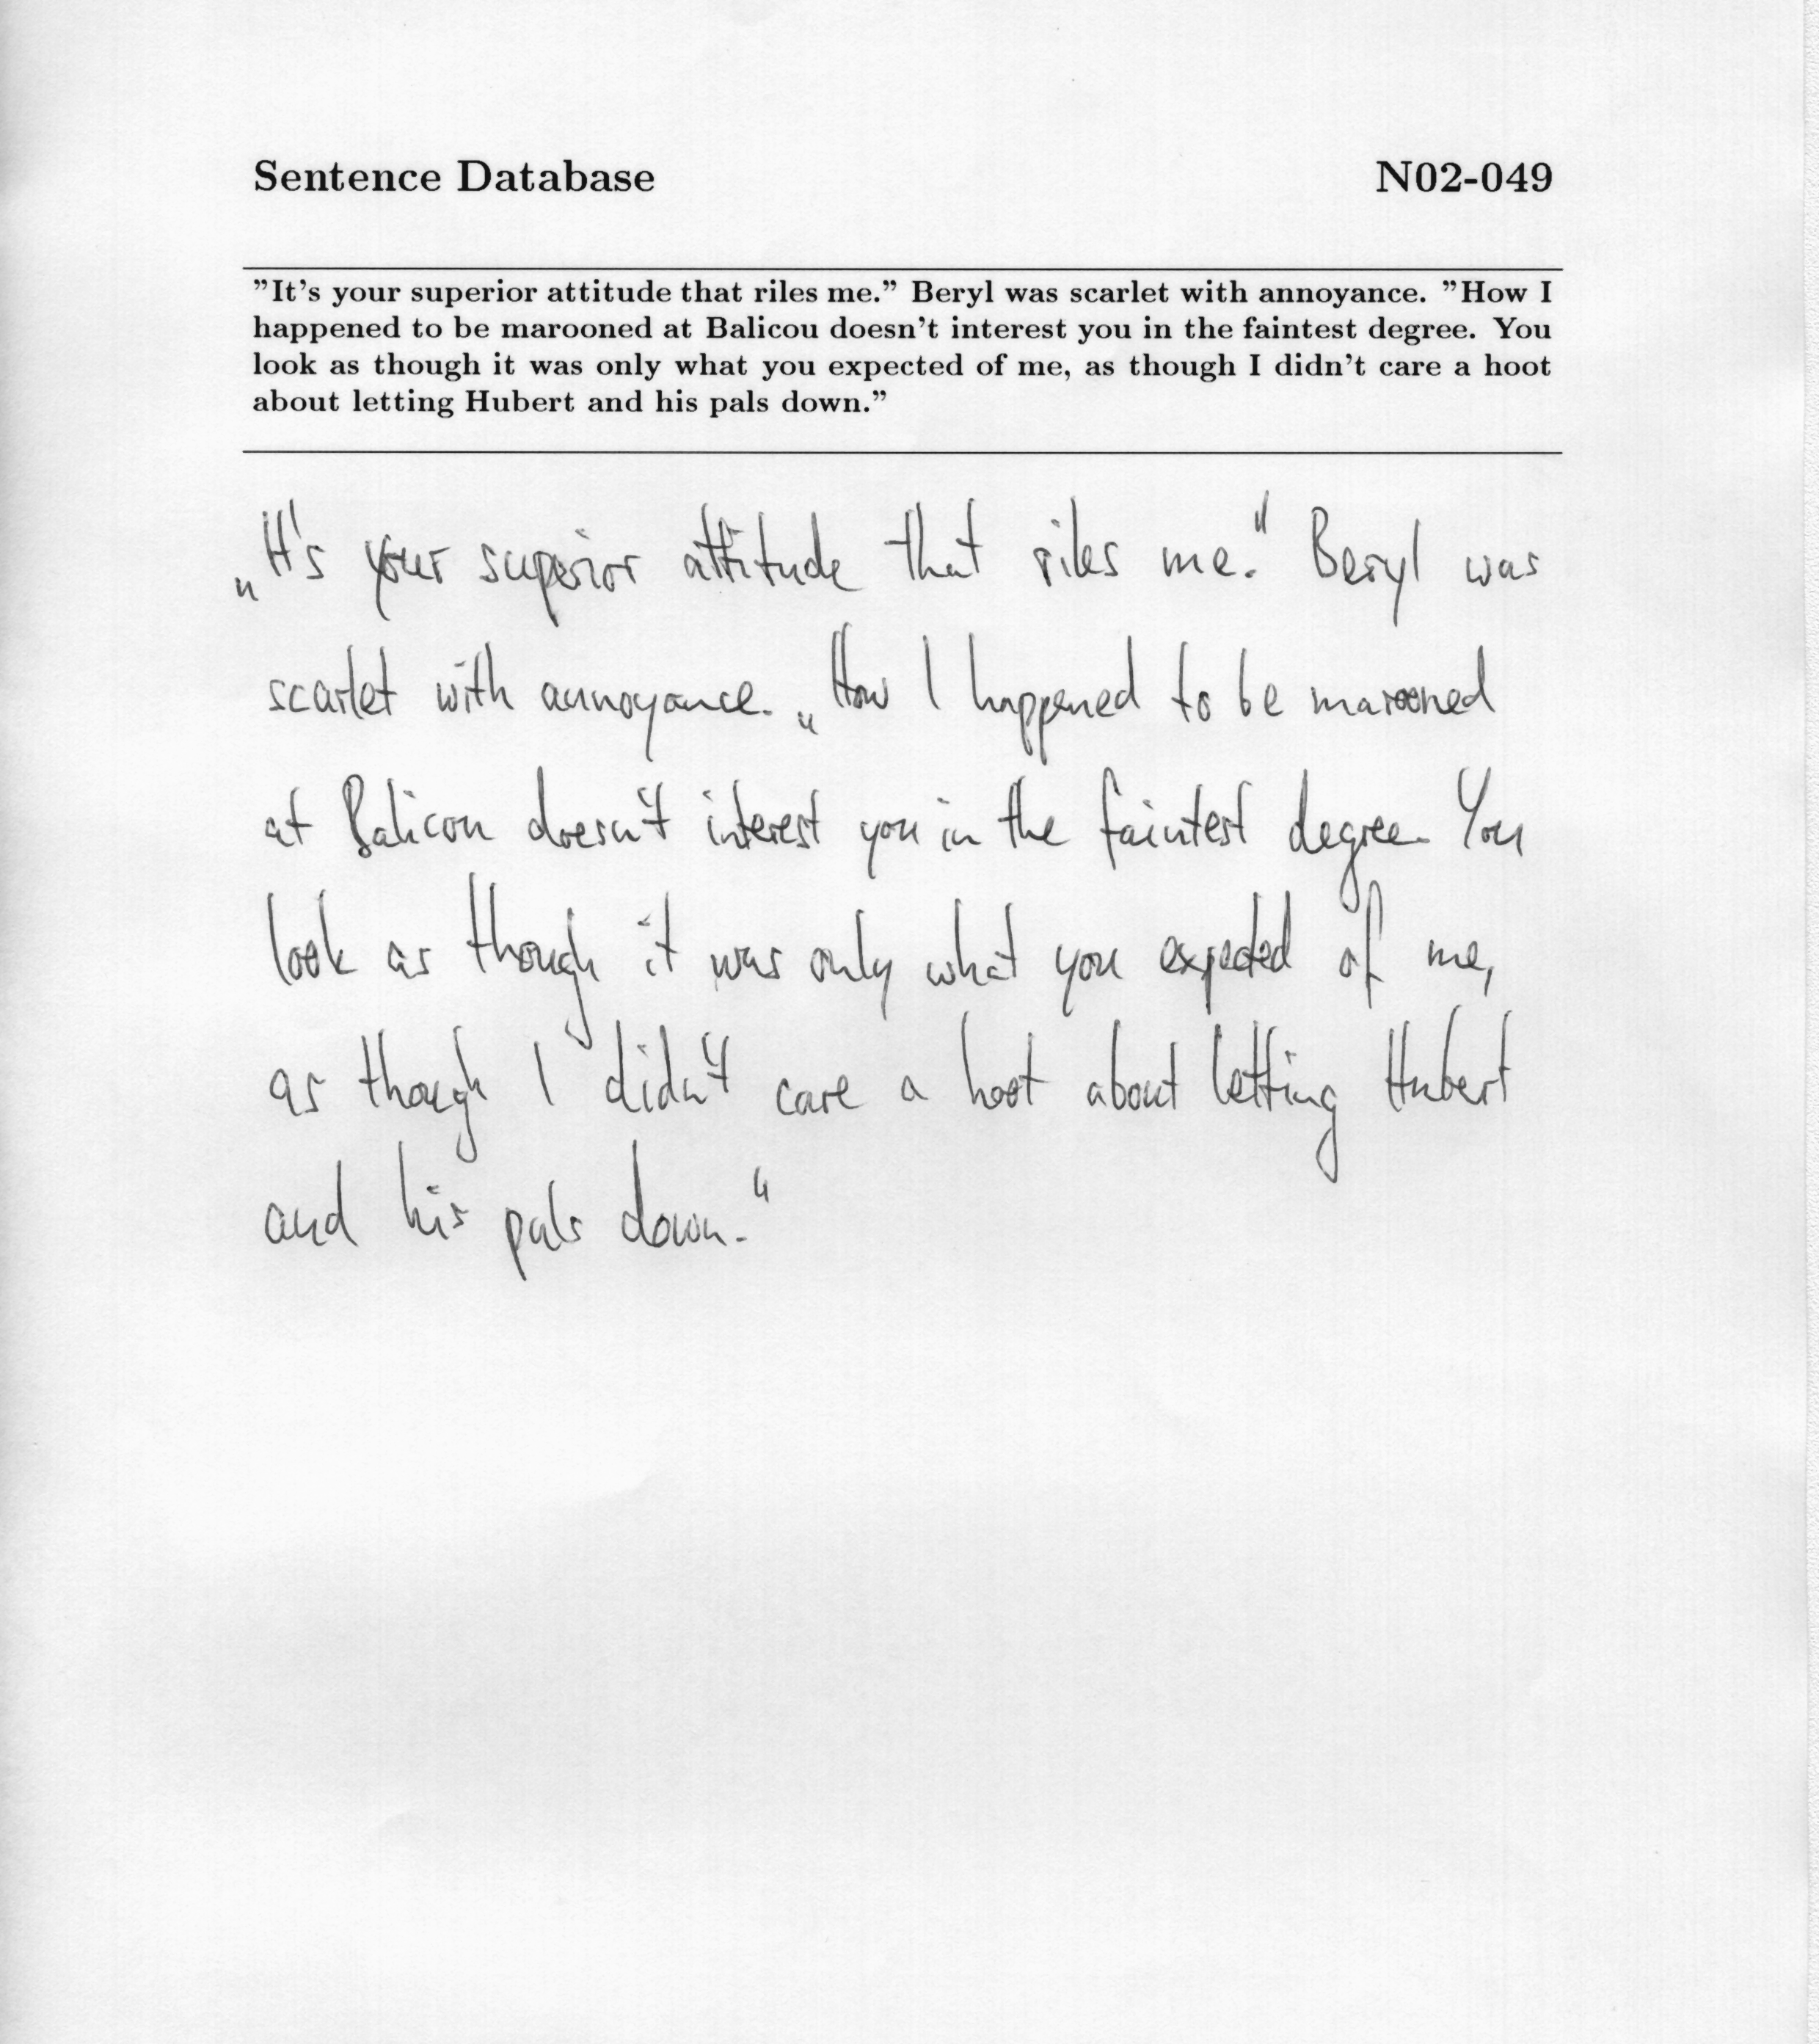 Sentence Database N02-049
"It's your superior attitude that riles me." Beryl was scarlet with annoyance. "How I
happened to be marooned at Balicou doesn't interest you in the faintest degree. You
look as though it was only what you expected of me, as though I didn't care a hoot
about letting Hubert and his pals down."
„It's your superior attitude that riles me." Beryl was
scarlet with annoyance. „How I happened to be marooned
at Balicou doesn't interest you in the faintest degree. You
look as though it was only what you expected of me,
as though I didn't care a hoot about letting Hubert
and his pals down."